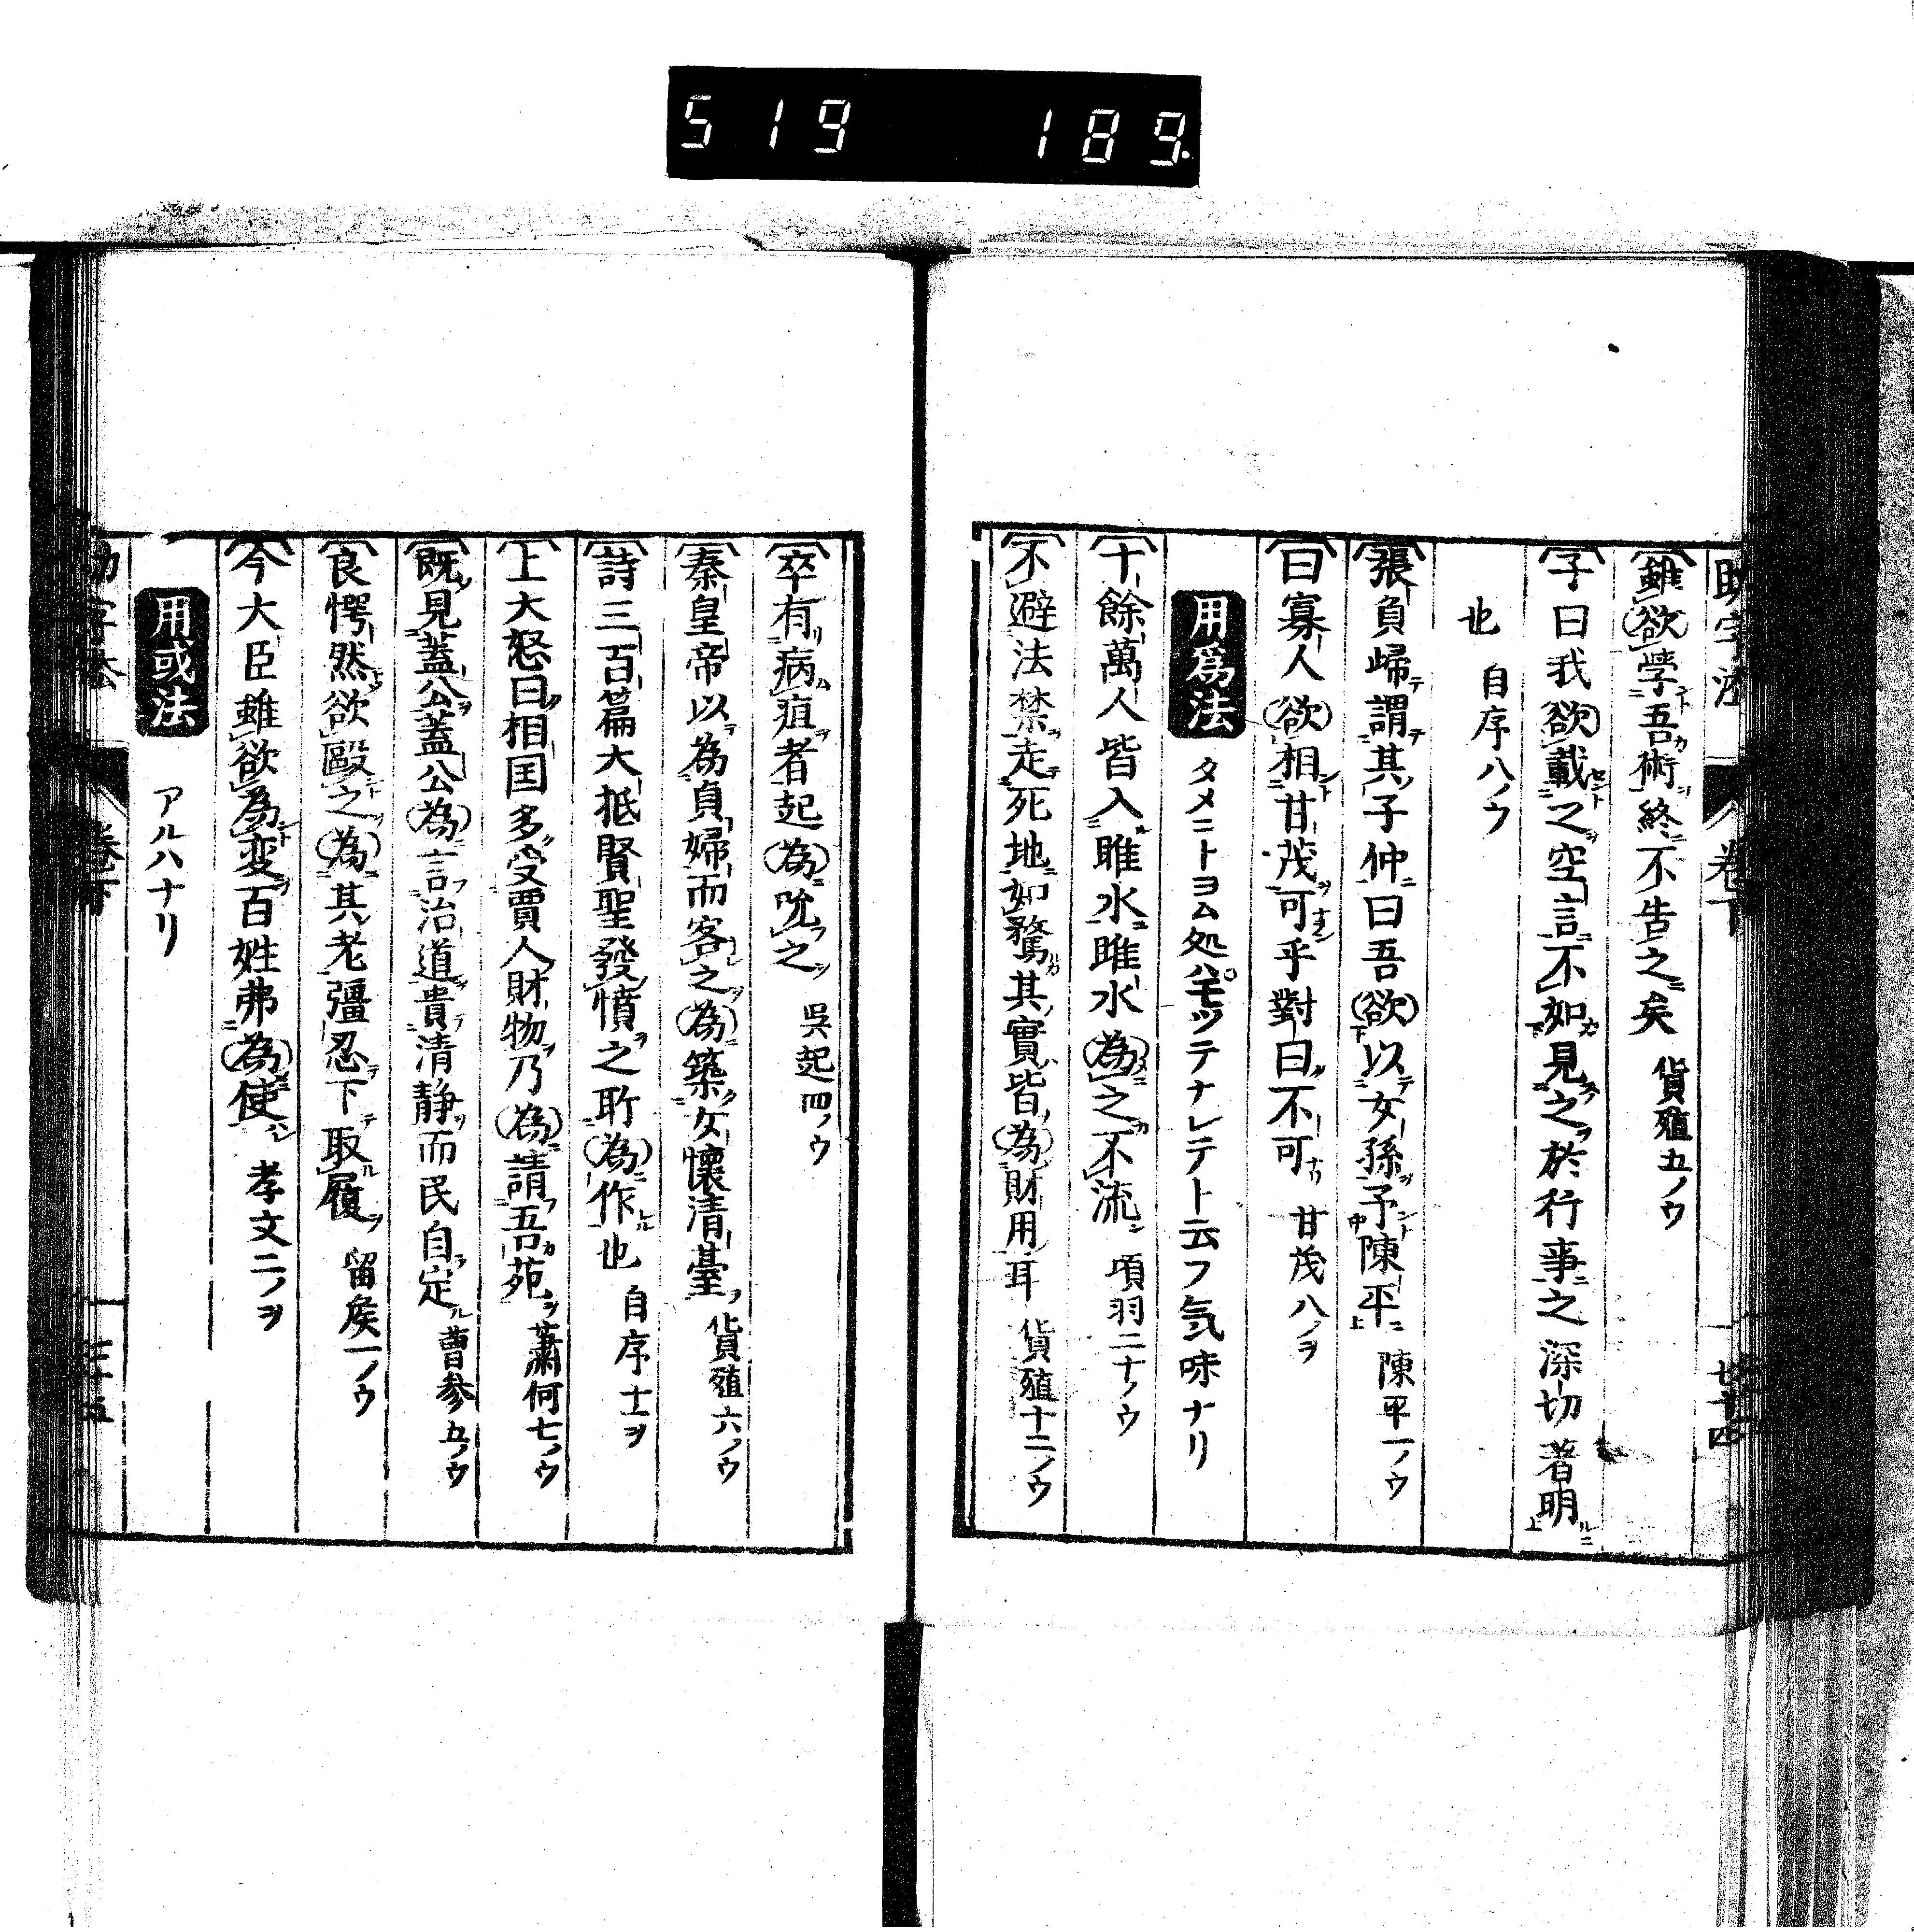 519 189
助字法 卷下 七十四
雖欲學吾術終不告之矣 貨殖五ノウ
子曰我欲載之空言不如見之於行事之深切著明
也 自序八ノウ
張負歸謂其子仲曰吾欲以女孫予陳平 陳平一ノウ
曰寡人欲相甘茂可乎對曰不可 甘茂八ノヲ
用爲法 タメニトヨム処ハモツテナレテト云フ気味ナリ
十餘萬人皆入睢水睢水為之不流 項羽二十ノウ
不避法禁走死地如騖其實皆為財用耳 貨殖十二ノウ
卒有病疽者起為吮之 吳起四ノウ
秦皇帝以為貞婦而客之為築女懷清臺 貨殖六ノウ
詩三百篇大抵賢聖發憤之所為作也 自序十一ヲ
上大怒曰相国多受賈人財物乃為請吾苑 蕭何七ノウ
既見蓋公蓋公為言治道貴清静而民自定 曹参五ノウ
良愕然欲毆之為其老彊忍下取履 留矦一ノウ
今大臣雖欲為変百姓弗為使 孝文二ノヲ
用或法 アルハナリ
助字法 卷下